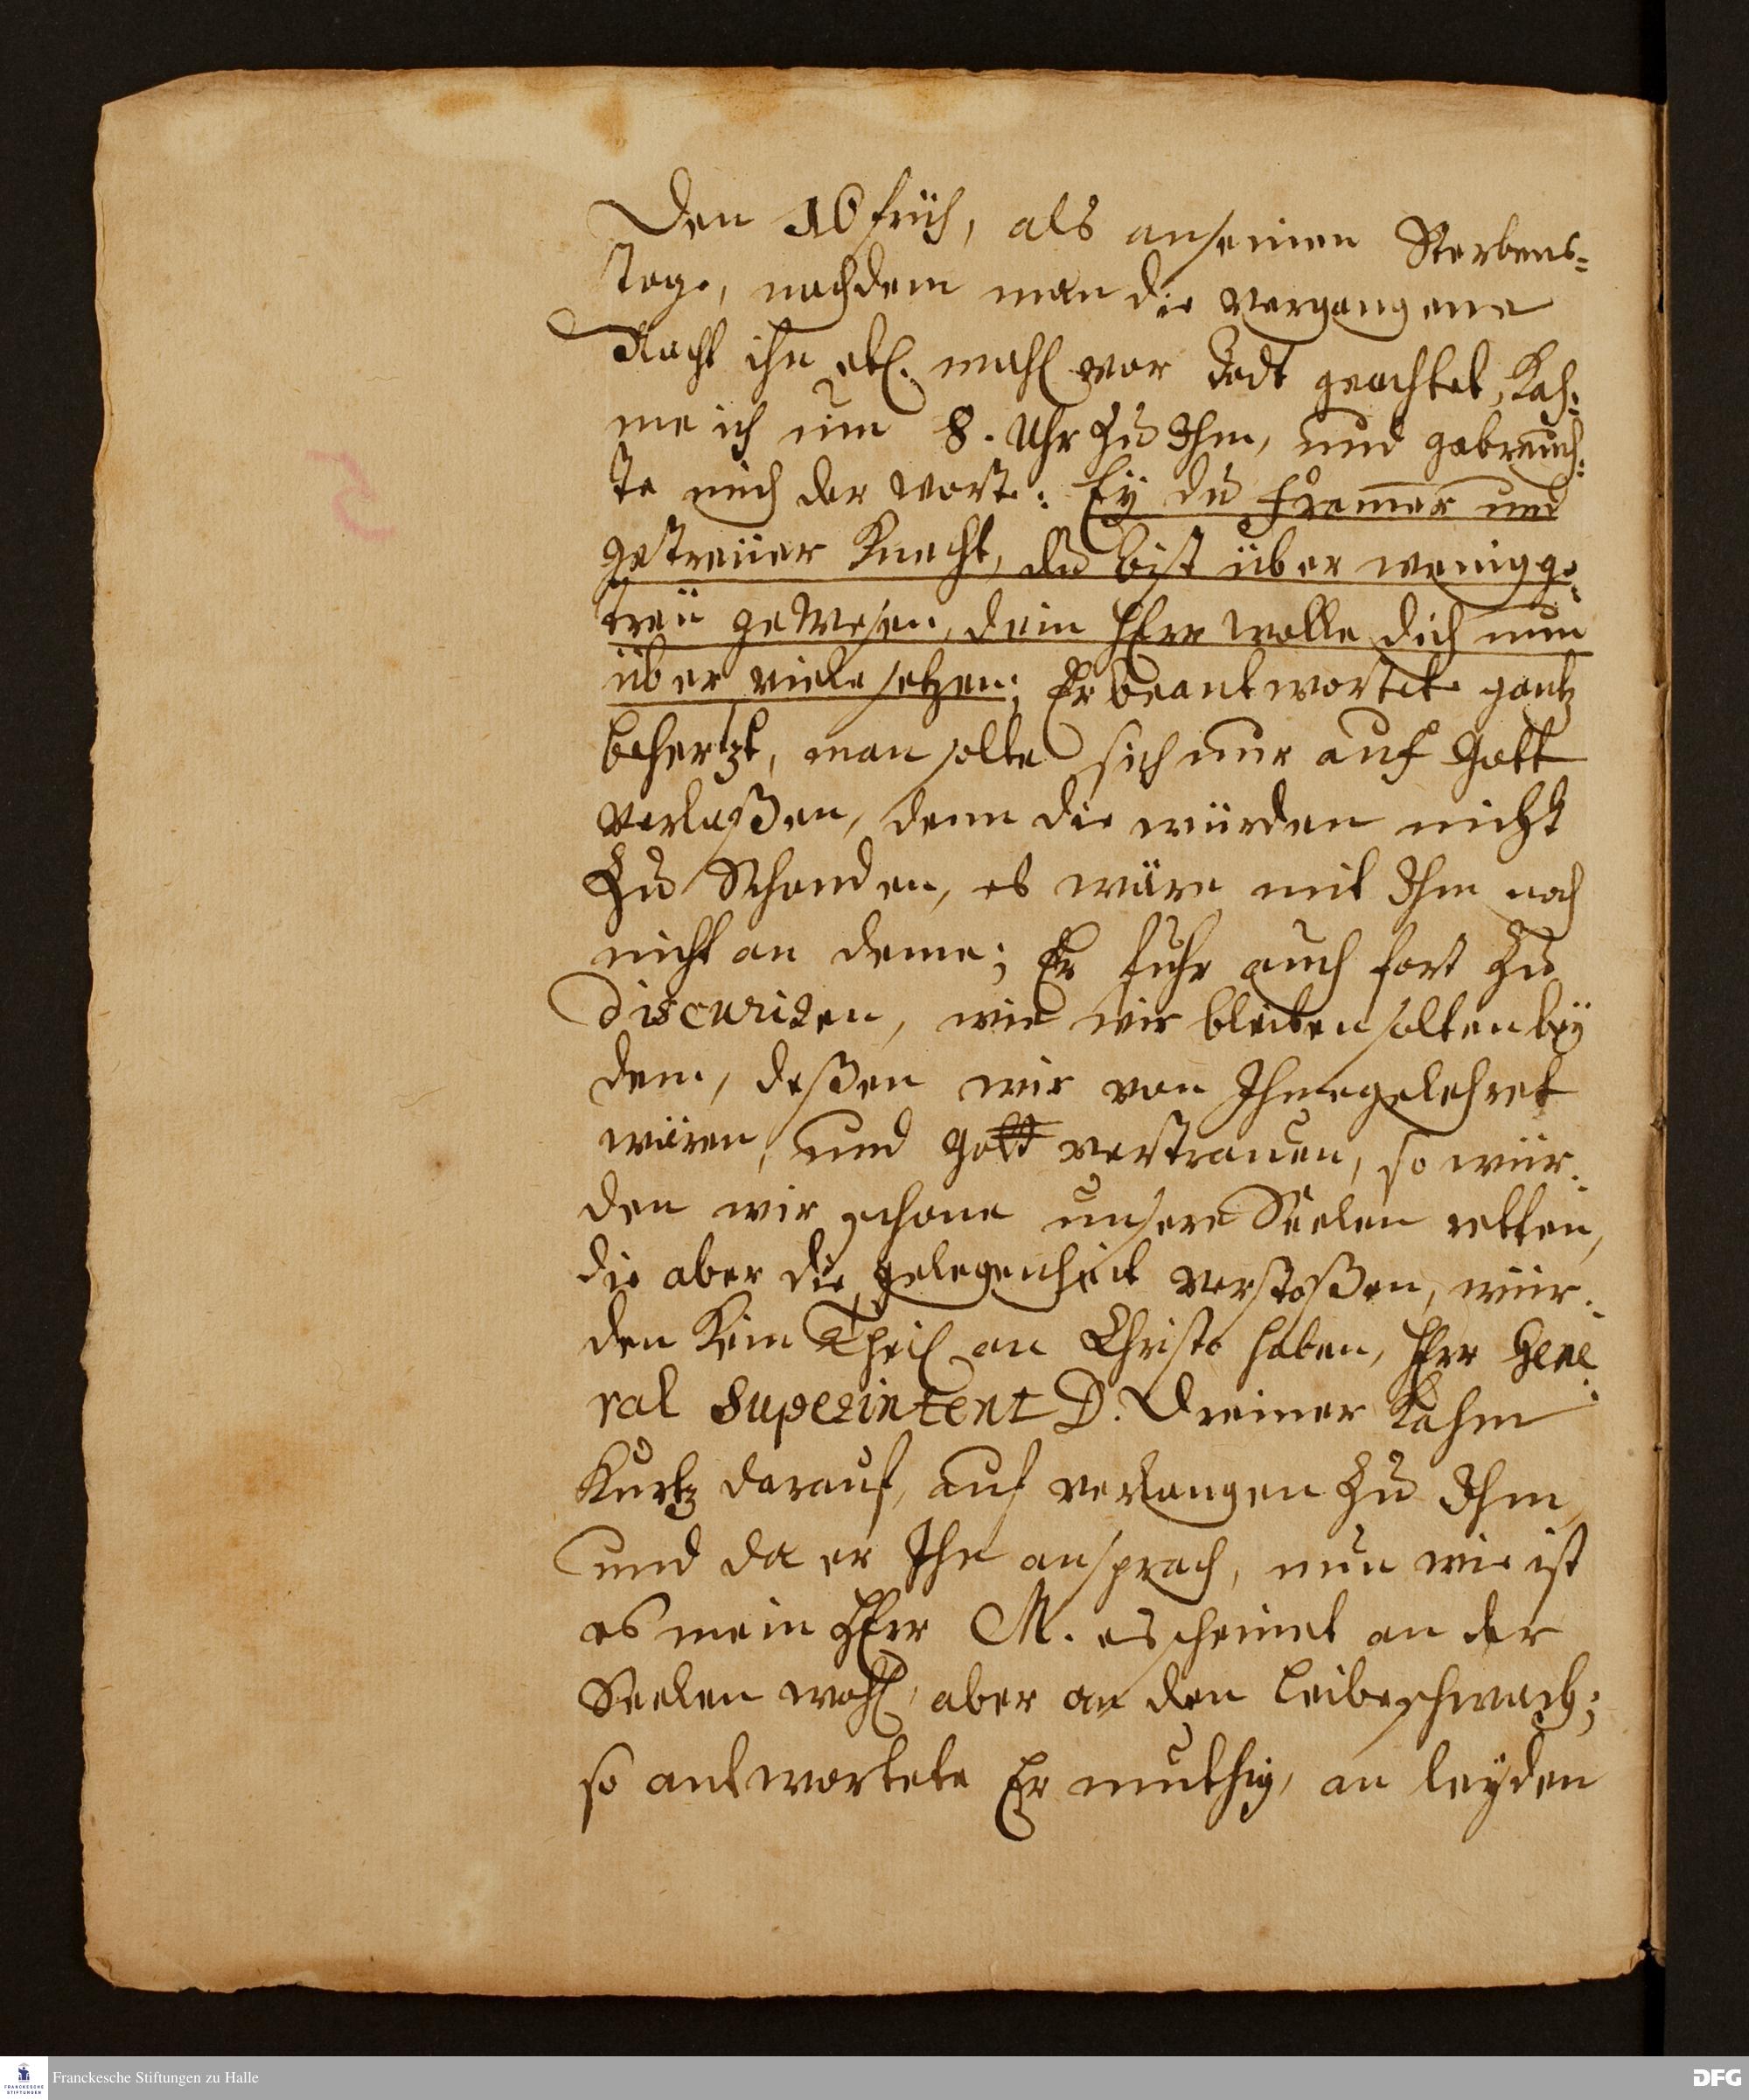 Den 16 früh, als an seinen Sterbens-
Tage, nachdem man die vergangene
Nacht ihn etl. mahl vor Todt geachtet, Kah-
me ich um 8. Uhr zu Ihm, und gebrauch-
te mich der Worte: Ey du fromer und
getreüer Knecht, du bist über wenig ge-
treü gewesen, dein HErr wolle dich nun
über viele setzen; Er beantwortete gantz
behertzt, man solte sich nur auf Gott
verlaßen, denn die würden nicht
zu Schanden, es wäre mit Ihm noch
nicht an deme; Er fuhr auch fort zu
discuriren, wie wir bleiben solten bey
dem, deßen wir von Ihme gelehret
wären, und Gott vertrauen, so wür-
den wir schone unsere Seelen retten,
die aber die gelegenheit verstoßen, wür-
den Kein Theil an Christo haben, Herr Gene-
ral Superintent D. Dreiner Kahm
Kurtz darauf, auf verlangen zu Ihm,
und da er Ihn ansprach, nun wie ist
es mein Herr M. es scheinet an der
Seelen wohl, aber an den Leibe schwach;
so antwortete Er muthig, an leyden
5
Franckesche Stiftungen zu Halle
FRANCKESCHE STIFTUNGEN
DFG